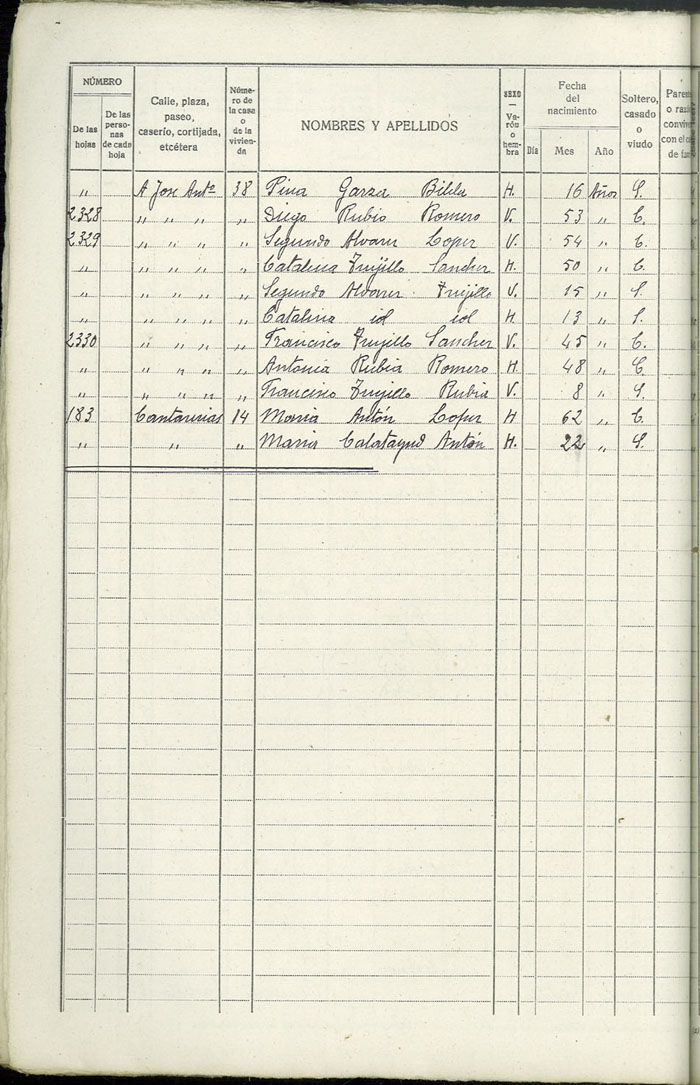 NÚMERO
De las hojas
De las personas de cada hoja
Calle, plaza, paseo, caserío, cortijada, etcétera
Número de la casa o de la vivienda
NOMBRES Y APELLIDOS
SEXO — Varón o hembra
Fecha del nacimiento
Día Mes Año
Soltero, casado o viudo
" A Jose Antº 38 Pina Garza H. 16 Años S.
2328 " " " " Diego Rubio Romero V. 53 " C.
2329 " " " " Segundo Alvarez Lopez V. 54 " C.
" " " " " Catalina Trujillo Sanchez H. 50 " C.
" " " " " Segundo Alvarez Trujillo V. 15 " S.
" " " " " Catalina id id H 13 " S.
2330 " " " " Francisco Trujillo Sanchez V. 45 " C.
" " " " " Antonia Rubia Romero H. 48 " C.
" " " " " Francisco Trujillo Rubia V. 8 " S.
183 Cantarerias 14 Maria Antón Lopez H 62 " C.
" " " Maria Calatayud Antón H. 22 " S.